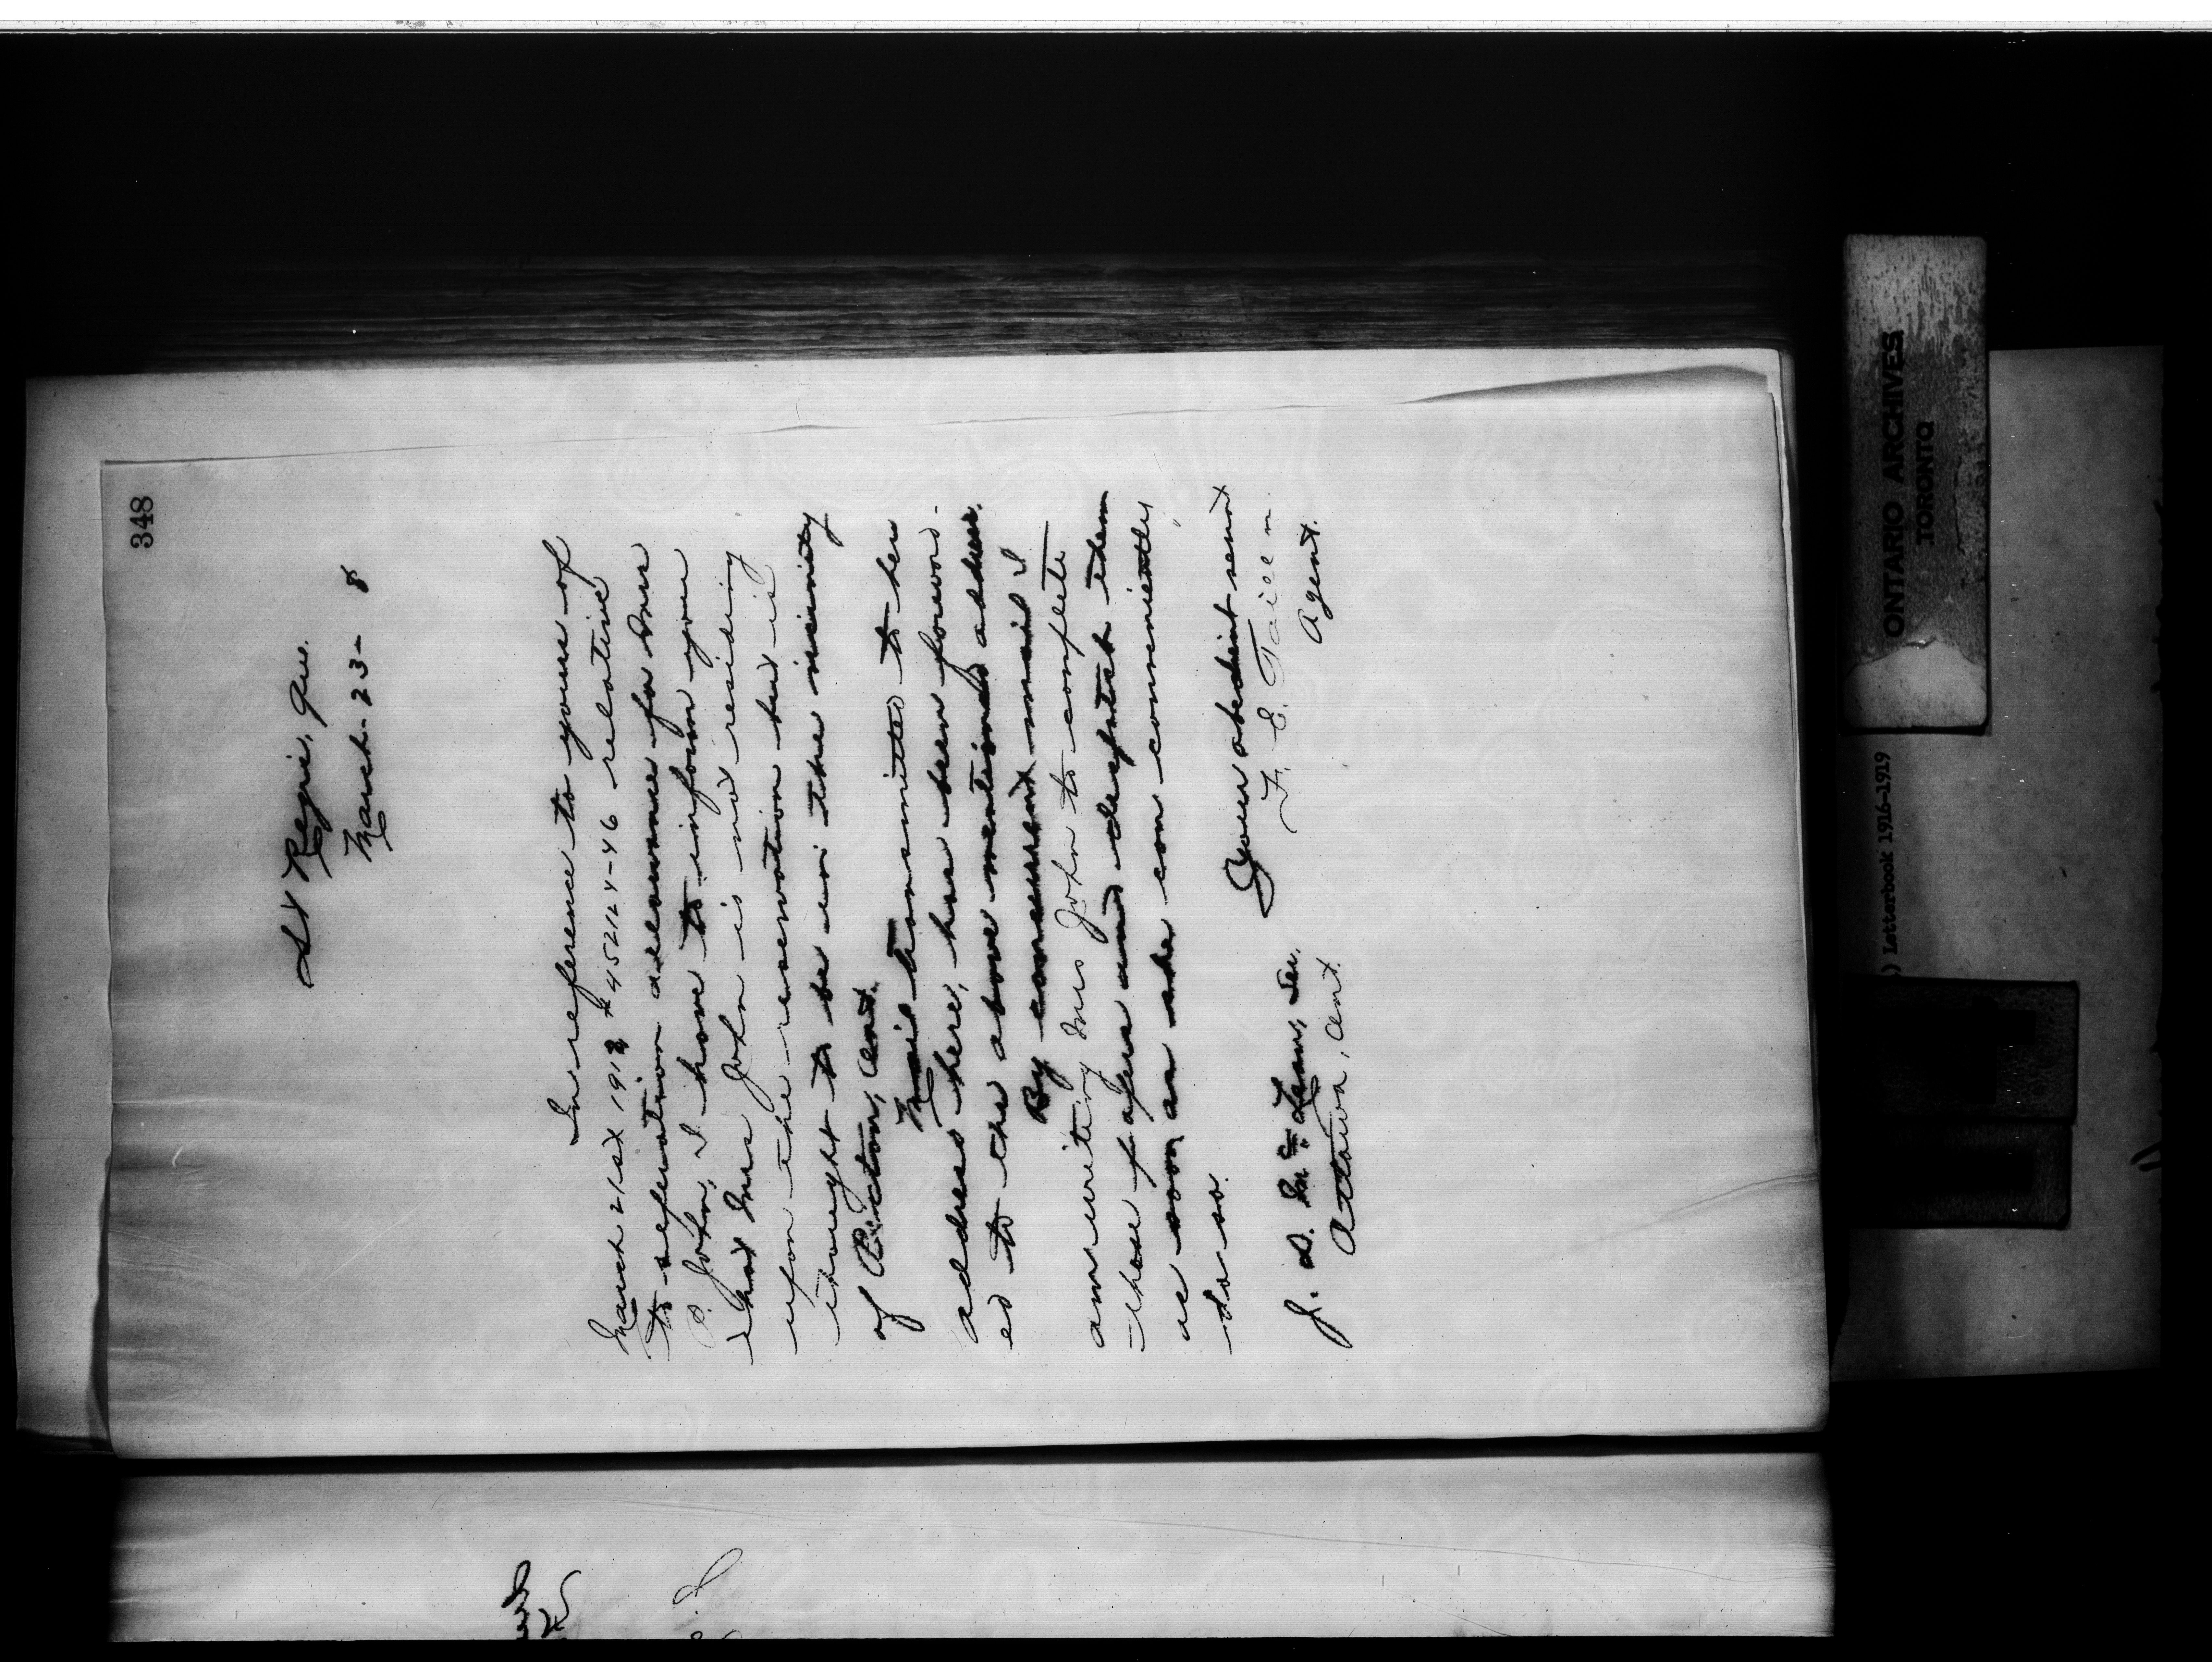 348
St Regis, Que.
March 23 - 8
In reference to yours of
March 21st 1918 # 452124-46 relative
to separation allowance for Mrs
P. John, I have to inform you
that Mrs John is not residing
upon the reservation but is
thought to be in the vicinity
of Picton, Ont.
Mail transmitted to her
address here, has been forward-
ed to the above mentioned address.
By concurrent mail I
am writing Mrs John to complete
these papers and despatch them
as soon as she can conveniently
do so.
Your obedient servant
F. E. Taillon
Agent.
J. D. McLean, Sec.
Ottawa, Ont.
ONTARIO ARCHIVES
TORONTO
) Letterbook 1916-1919